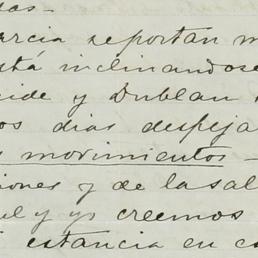 as-
arcia reportan m
stá inclinandose
cide y Dublan
os dias despeja
s movimientos -
iones y de lasal
ul y yo creemos
i estancia en co